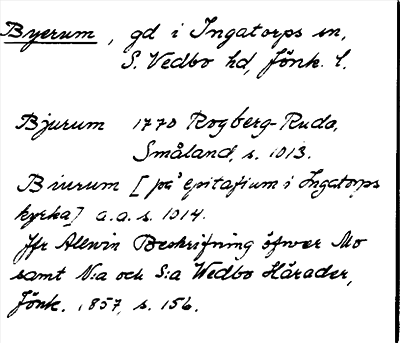 Byerum, gd i Ingatorps sn,
S. Vedbo hd, Jönk. l.
Bjurum 1770 Rogberg-Ruda,
Småland, s. 1013.
Biurum [på epitafium i Ingatorps
kyrka] a.a. s. 1014.
Jfr Allwin Beskrifning öfwer Mo
samt N:a och S:a Wedbo Härader,
Jönk. 1857, s. 156.